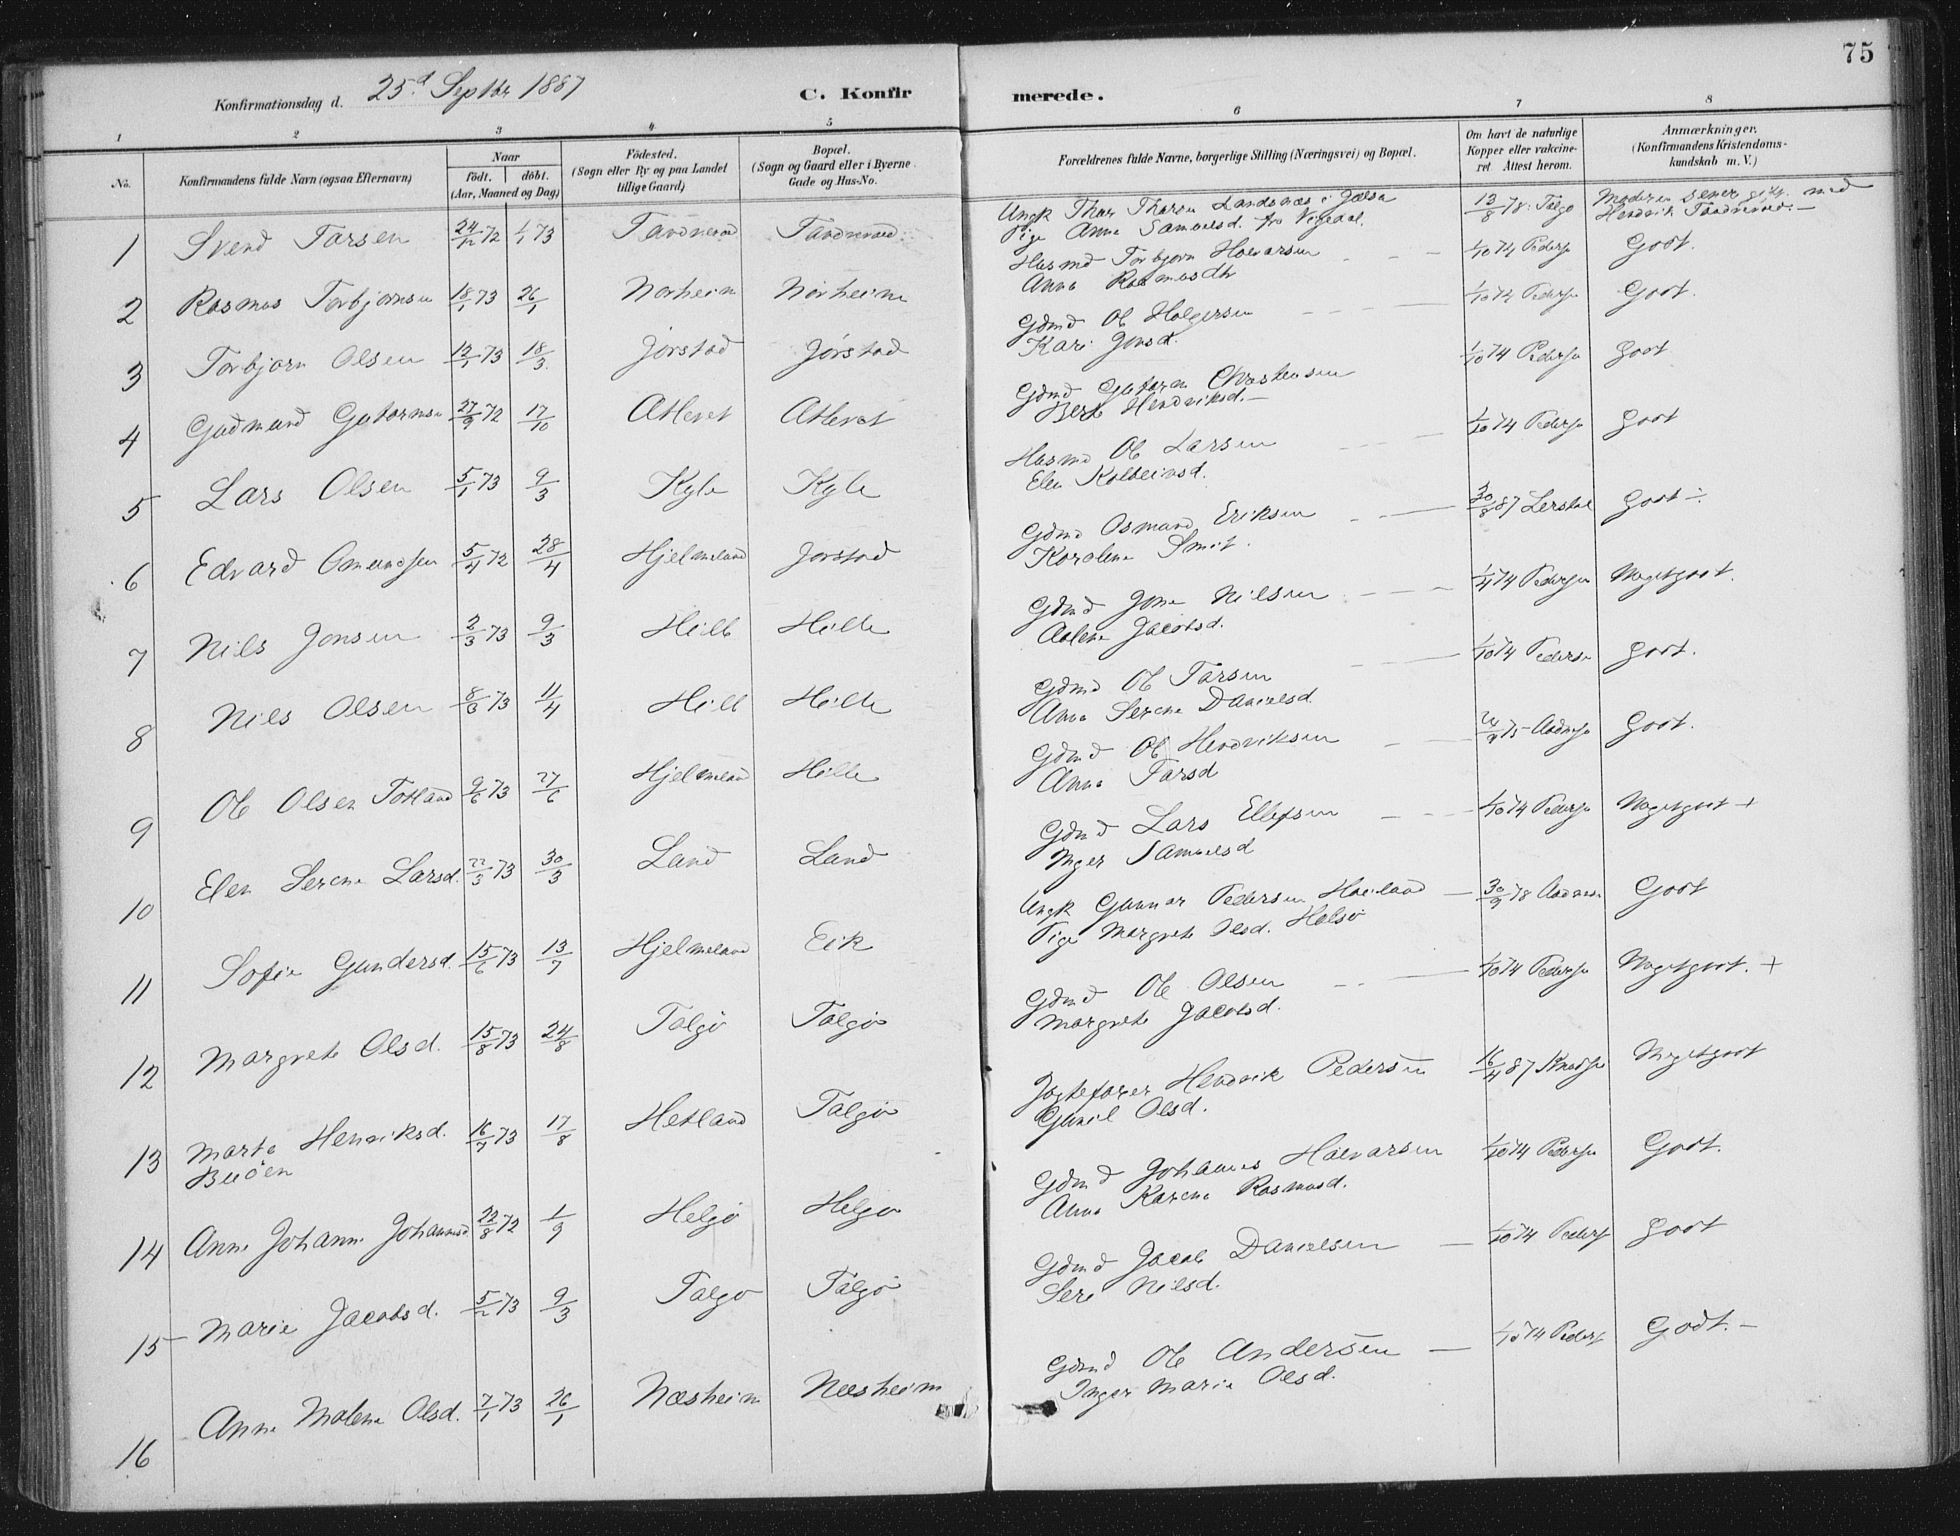 75
Konfirmationsdag d. 25d Septbr 1887
C. Konfirmerede.
1 2 3 4 5 6 7 8
No. Konfirmandens fulde Navn (ogsaa Efternavn) Naar födt. döbt. (Aar, Maaned og Dag) Födested. (Sogn eller By og paa Landet tillige Gaard) Bopæl. (Sogn og Gaard eller i Byerne Gade og Hus-No. Forældrenes fulde Navne, borgerlige Stilling (Næringsvei) og Bopæl. Om havt de naturlige Kopper eller vaccineret. Attest herom. Anmærkninger. (Konfirmandens Kristendomskundskab m. V.)
1 Svend Tarsen 24/12 72 1/1 73 Ungk Thor Thorsen Landsnæs i Jælsa 13/8 78 Talgø Moderen senere gift med
Pige Anna Samuelsd. fra Vigedal. Hendrik
2 Rasmus Torbjørnsen 18/1 73 26/1 Norheim Norheim Husmd Torbjørn Halvarsen 1/10 74 Pedersen Godt.
Anna Rasmusdtr
3 Torbjørn Olsen 12/1 73 18/3 Jørstad Jørstad Gdmd Ole Holgersen 1/10 74 Pedersen Godt.
Kari Jonsd.
4 Gudmund Gutormsen 27/9 72 17/10 Atleret Atleret Gdmd Gutorm Christensen 1/10 74 Pedersen Godt
Berte Hendriksd.
5 Lars Olsen 5/1 73 9/3 Kyle Kyle Husmd Ole Larsen 1/10 74 Pedersen Godt
Elen Kolbeinsd.
6 Edvard Omundsen 5/4 72 28/4 Hjelmeland Jørstad Gdmd Osmund Eriksen 30/8 87 Godt
Karolene Smit.
7 Nils Jonsen 2/3 73 9/3 Hille Hille Gdmd Jone Nilsen 1/4 74 Pedersen Megetgodt.
Aalene Jacobsd.
8 Nils Olsen 8/3 73 11/4 Hille Hille Gdmd Ole Tarsen 1/10 74 Pedersen Godt.
Anna Serene Danielsd.
9 Ole Olsen Totland 9/6 73 27/6 Hjelmeland Hille Gdmd Ole Hendriksen Godt.
Anna Tarsd
10 Elen Serene Larsd. 22/3 73 30/3 Land Land Gdmd Lars Ellefsen 1/10 74 Pedersen Megetgodt +
Inger Samuelsd
11 Sofie Gundersd. 15/6 73 13/7 Hjelmeland Eik Ungk Gunnar Pedersen Høiland 30/9 78 Godt
Pige Margrete Olsd. Halsø
12 Margrete Olsd. 15/8 73 24/8 Talgø Talgø Gdmd Ole Olsen 1/10 74 Pedersen Megetgodt. +
Margrete Jacobsd.
13 Marta Henriksd. 16/7 73 17/8 Hetland Talgø Jagtefører Hendrik Pedersen 16/4 87 Knudsen Megetgodt
Buøen Gunil Olsd.
14 Anne Johanne Johannesd 22/8 72 1/9 Helgø Helgø Gdmd Johannes Halvarsen 1/10 74 Pedersen Godt.
Anna Karene Rasmusd.
15 Marie Jacobsd. 5/2 73 9/3 Talgø Talgø Gdmd Jacob Danielsen 1/10 74 Pedersen Godt
Seri Nilsd.
16 Anne Malene Olsd. 7/1 73 26/1 Næsheim Næsheim Gdmd Ole Andersen 1/10 74 Pedersen Godt.
Inger Marie Olsd.